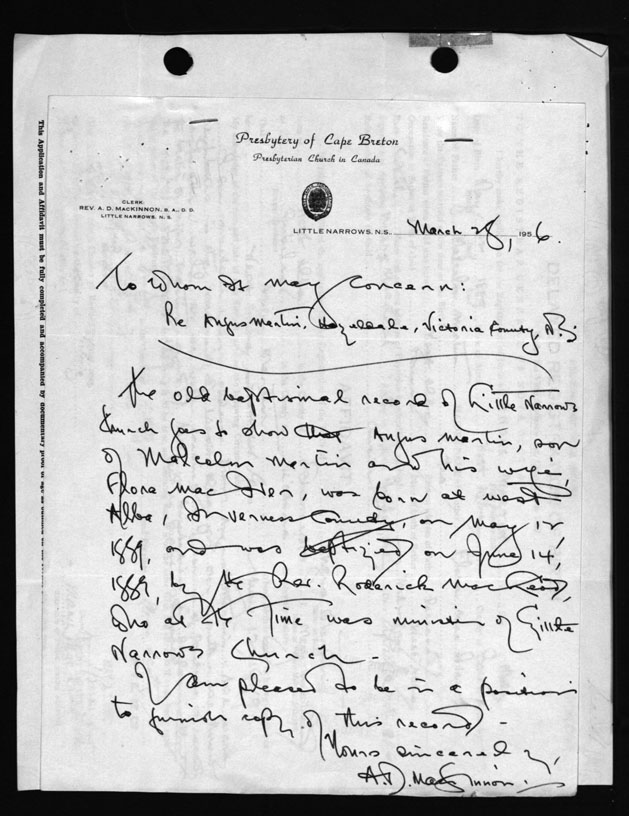 Presbytery of Cape Breton
Presbyterian Church in Canada
CLERK:
REV. A. D. MACKINNON, B. A., D. D.
LITTLE NARROWS, N. S.
LITTLE NARROWS, N.S. March 28, 1956.
To Whom It may Concern:
Re Angus Martin, Hazeldale, Victoria County, N.S.
The old baptismal record of Little Narrows
Church goes to show that Angus Martin, son
of Malcolm Martin and his wife,
Flora MacIver, was born at West
Alba, Inverness County, on May 12
1889, and was baptized on June 14,
1889, by the Rev. Roderick MacLeod,
who at the Time was minister of Little
Narrows Church.
I am pleased to be in a position
to furnish copy of this record -
Yours sincerely,
A.D. MacKinnon.
This Application and Affidavit must be fully completed and accompanied by documentary proof of age